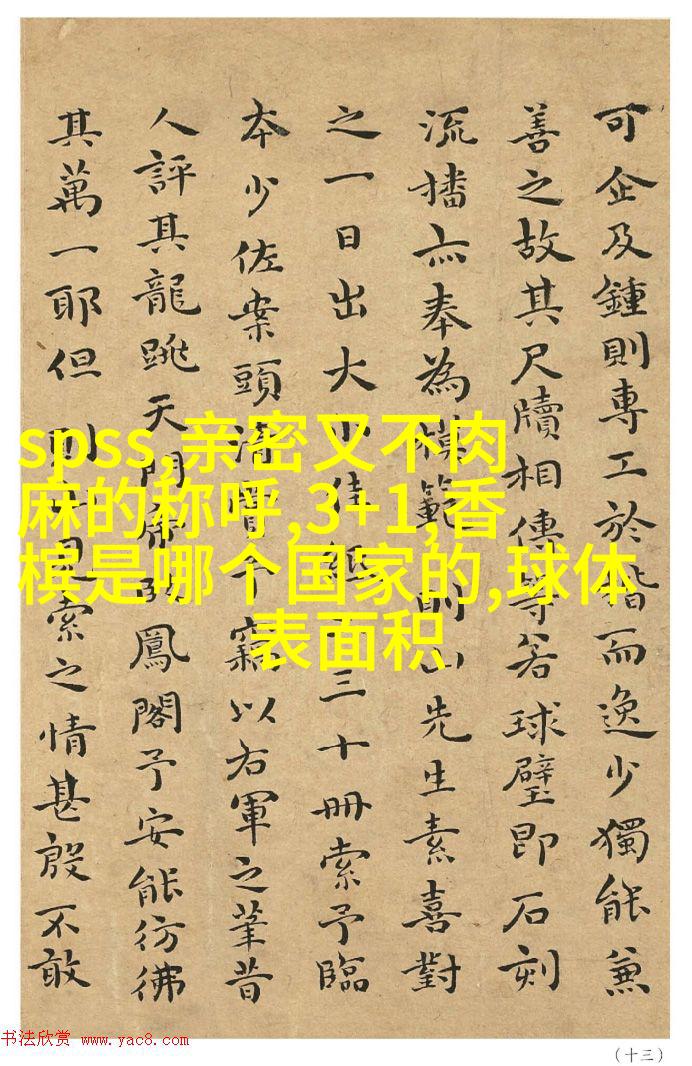 可企及鍾則專工於楷而逸少獨能兼
善之故其尺牘相傳等若球璧即石刻
流播亦奉為模範則山先生素喜對
之一日出大小佳紙二三十冊索予臨
本少佐案頭清賞予竊以右軍之筆昔
人評其龍跳天門虎臥鳳閣予安能彷彿
其萬一耶但則山見索之情甚殷不敢
spss,亲密又不肉
麻的称呼,3+1,香
槟是哪个国家的,球体
表面积
书法欣赏 www.yac8.com
(十三)